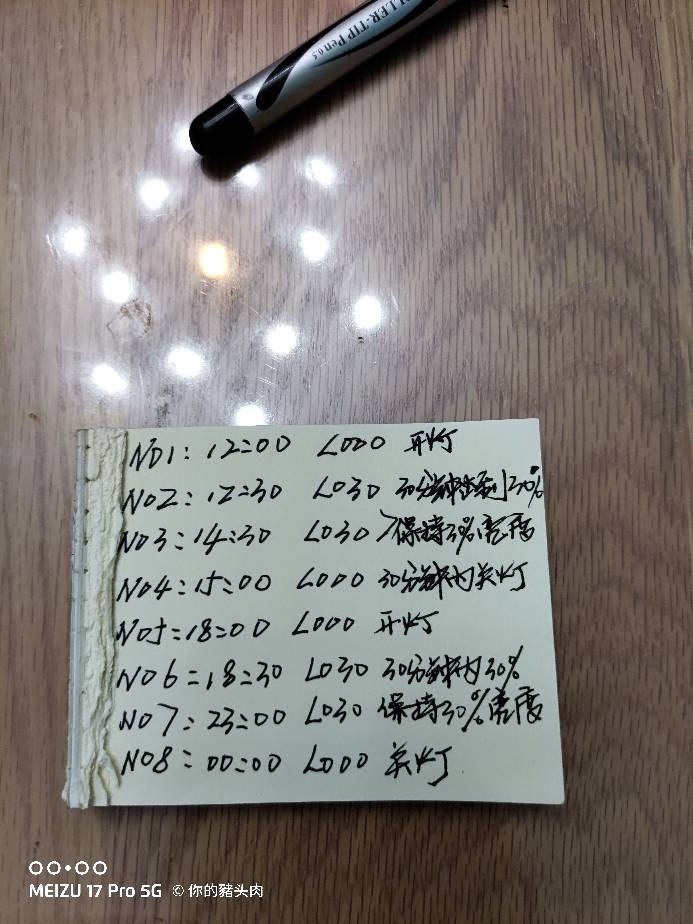 LLER-TIP Pens
NO1: 12:00 L000 开灯
NO2: 12:30 L030 30分钟到30%
NO3: 14:30 L030 保持30%亮度
NO4: 15:00 L000 30分钟内关灯
NO5: 18:00 L000 开灯
NO6: 18:30 L030 30分钟内30%
NO7: 23:00 L030 保持30%亮度
NO8: 00:00 L000 关灯
MEIZU 17 Pro 5G © 你的豬头肉